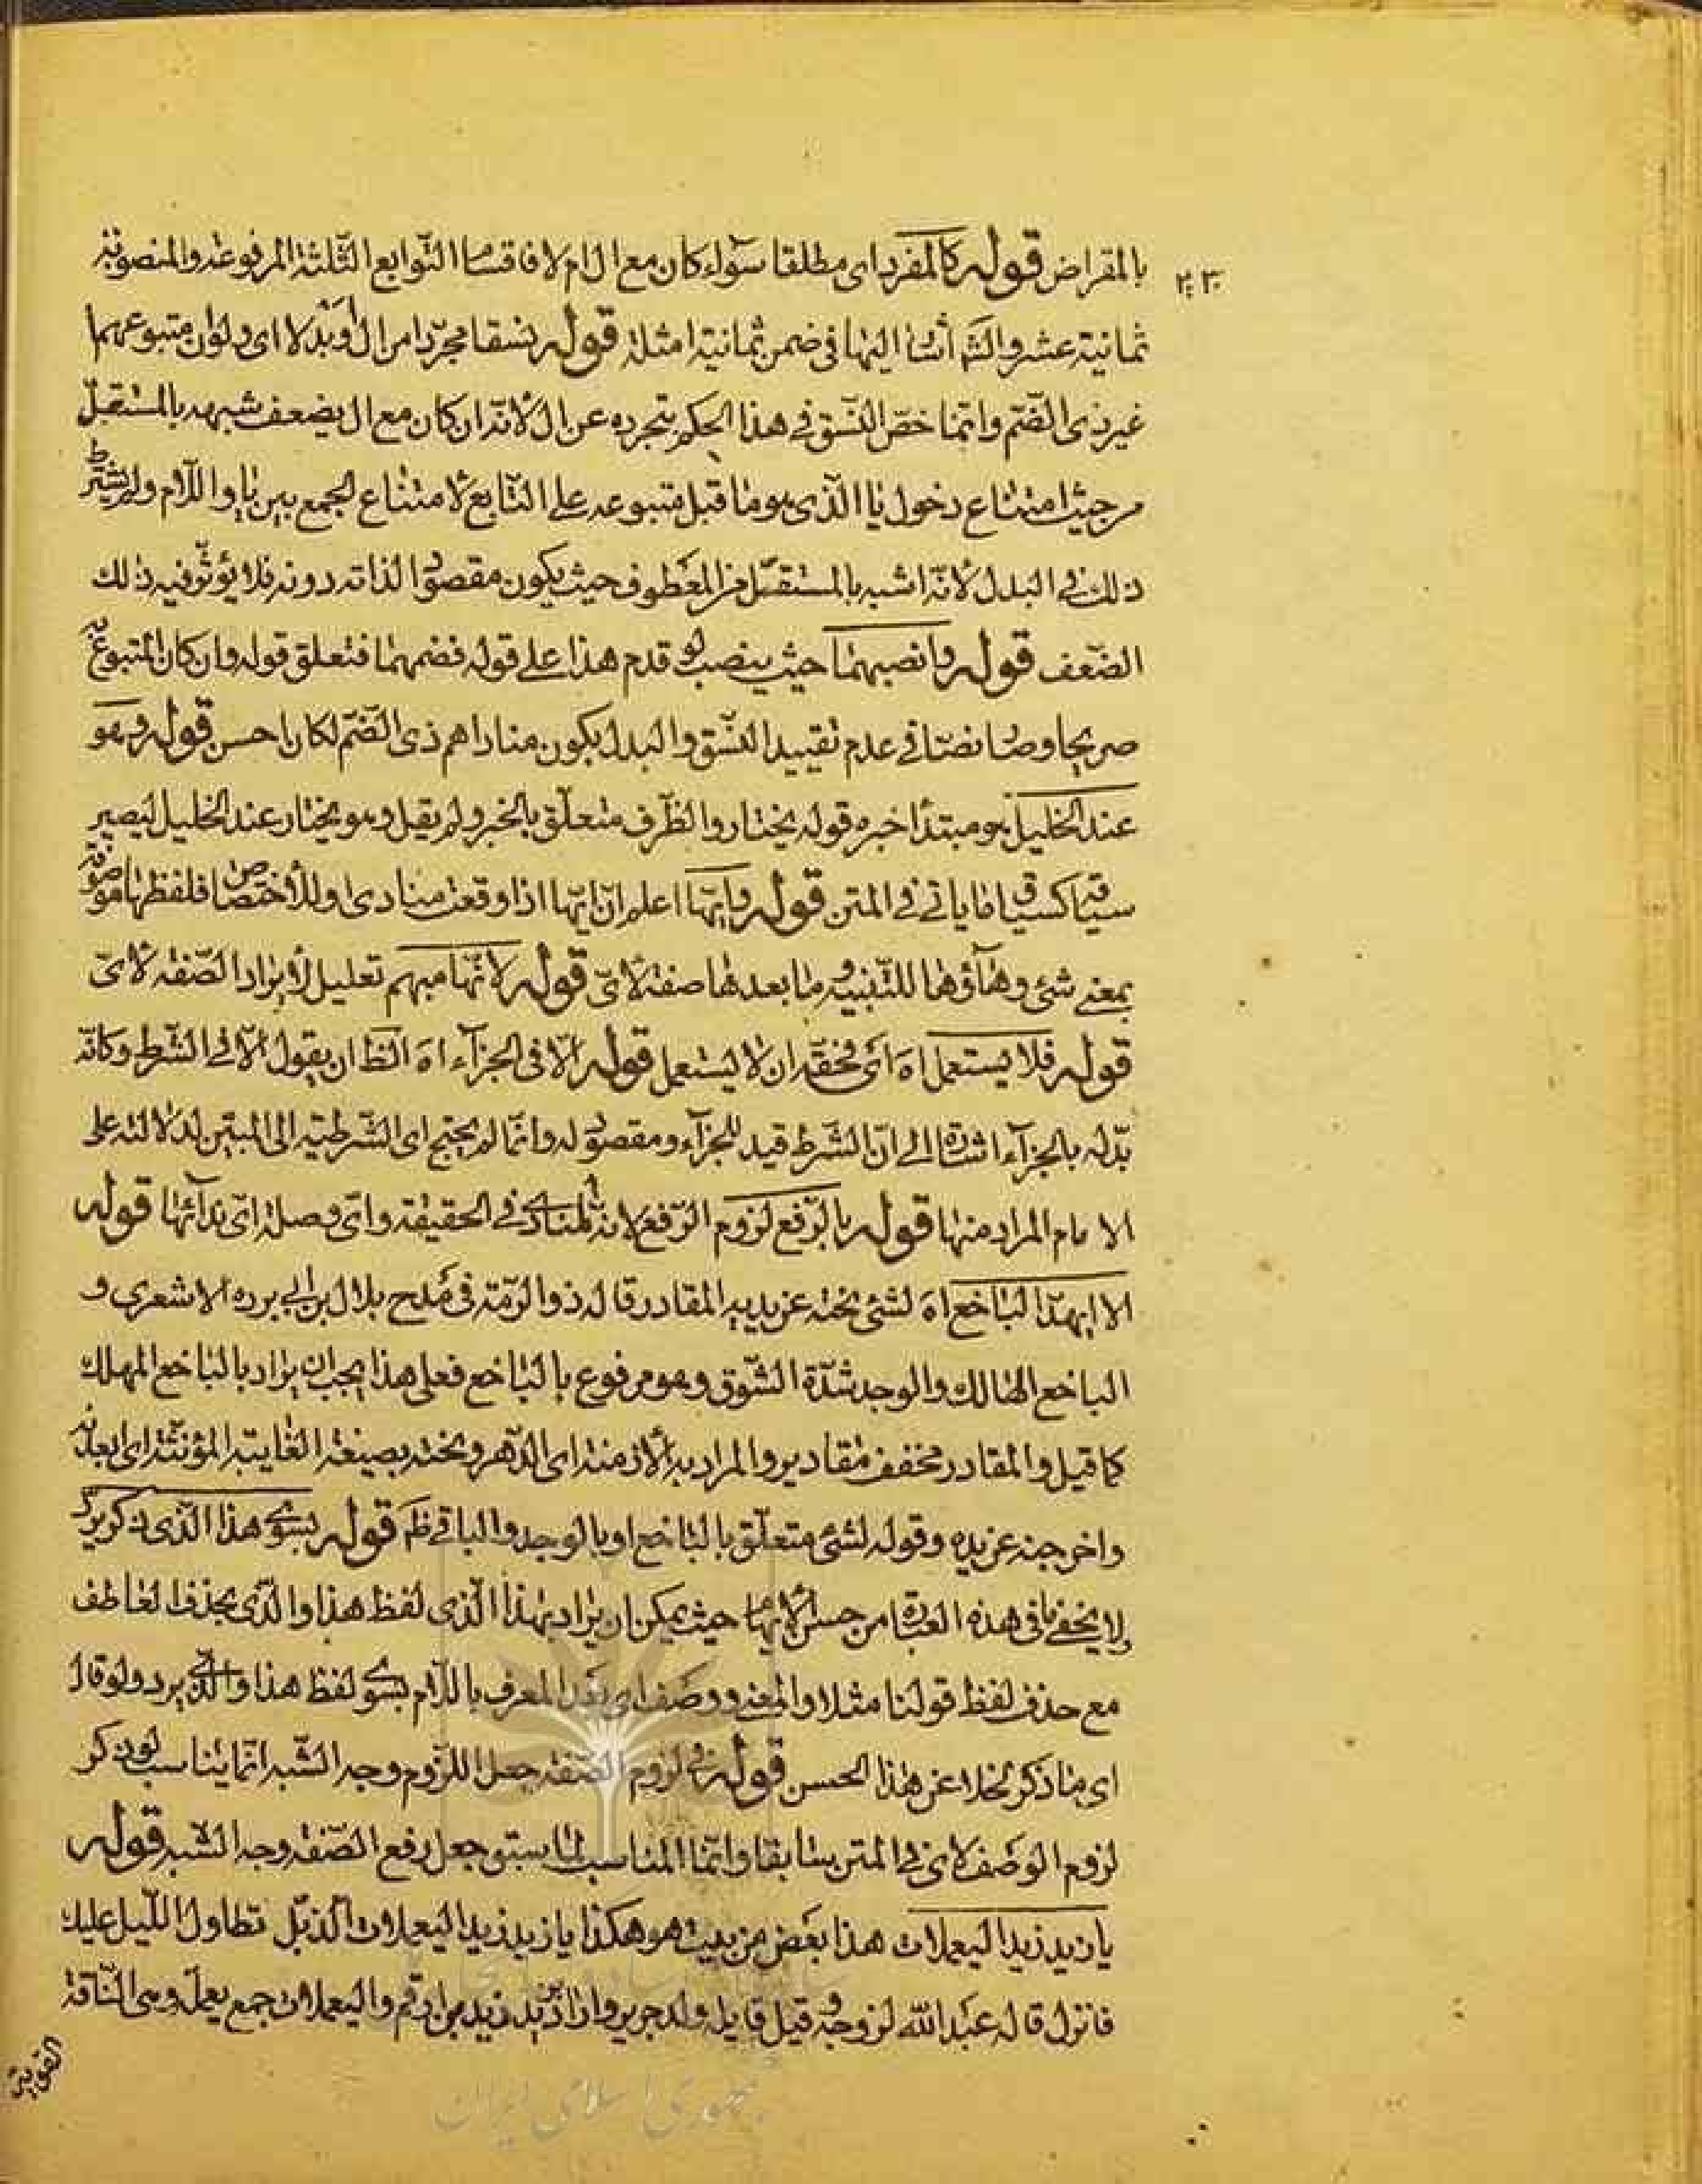 بالمقراض قوله كالمفرد اى مطلقا سوآء كان مع ال ام لا فاقسام التّوابع الثّلثة المرفوعة والمنصوبة
ثمانية عشر والشّم اشار اليها فى ضمن ثمانية امثلة قوله نسقا مجرّدا من ال او بدلا اى ولو ان متبوعهما
غير ذى الضّم وانّما خصّ النّسق فى هذا الحكم بتجرده عن ال لانّه ان كان مع ال يضعف شبهه بالمستقلّ
من حيث امتناع دخول يا الّذى هو ما قبل متبوعه على التّابع لامتناع الجمع بين يا واللّام ولم يشترط
ذلك فى البدل لانّه اشبه بالمستقلّ من المعطوف حيث يكون مقصودا لذاته دونه فلا يؤثّر فيه ذلك
الضّعف قوله وانصبهما حيث ينصب لو قدم هذا على قوله فضمهما فتعلق قوله وان كان المتبوع
صريحا وصار نصّا فى عدم تقييد النّسق والبدل بكون مناداهم ذى الضّم لكان احسن قوله وهو
عند الخليل هو مبتدأ خبره قوله يختار والظّرف متعلّق بالخبر ولم يقل وهو يختار عند الخليل ليصير
سياقه كسياق ما ياتى فى المتن قوله وايّها اعلم ان ايّها اذا وقعت منادى او للاختصاص فلفظها موصوفة
بمعنى شئ وهآؤها للتّنبيه وما بعدها صفة لاىّ قوله لانّها مبهم تعليل لايراد الصّفة لاىّ
قوله فلا يستعمل اه اى فحقه ان لا يستعمل قوله الا فى الجزآء اه الظ ان يقول الا فى الشّرط وكانّه
بدّله بالجزآء اشارة الى انّ الشّرط قيد للجزآء ومقصود له وانّما لم يحتج اى الشّرطية الى المبيّن لدلالته على
الابهام المراد منها قوله بالرّفع لزوم الرّفع لانه المنادى فى الحقيقة واىّ وصلة اى ندآئها قوله
الا ايهذا الباخع اه لشئ نحته عن يديه المقادر قاله ذو الرّمة فى مدح بلال بن ابى برده الاشعرى و
الباخع الهالك والوجد شدّة الشّوق وهو مرفوع بالباخع فعلى هذا يجب ان يراد بالباخع المهلك
كما قيل والمقادر مخفف مقادير والمراد به الازمنة اى الدّهر ونحته بصيغة الغايبة المؤنثة اى ابعدته
واخرجته عن يده وقوله لشئ متعلّق بالباخع او بالوجد والباقى ظم قوله بسوى هذا الّذى ذكر يردّ
ولا يخفى ما فى هذه العبارة من حسن الايهام حيث يمكن ان يراد بهذا الّذى لفظ هذا والّذى بحذف العاطف
مع حذف لفظ قولنا مثلا والمعنى ووصف اى بغير المعرف باللّام بسوى لفظ هذا والّذى يرد ولو قال
اى بما ذكر لخلا عن هذا الحسن قوله فى لزوم الصّفة جعل اللزوم وجه الشّبه انّما يناسب لو ذكر
لزوم الوصف لاى فى المتن سابقا وانّما المناسب لما سبق جعل رفع الصّفة وجه الشّبه قوله
يا زيد زيد اليعملات هذا بعض من بيت هو هكذا يا زيد زيد اليعملات الذبّل تطاول اللّيل عليك
فانزل قاله عبد الله لزوجه وقيل قايله ولد جرير واراد بزيد زيد بن ارقم واليعملات جمع يعملة وهى النّاقة
القوية